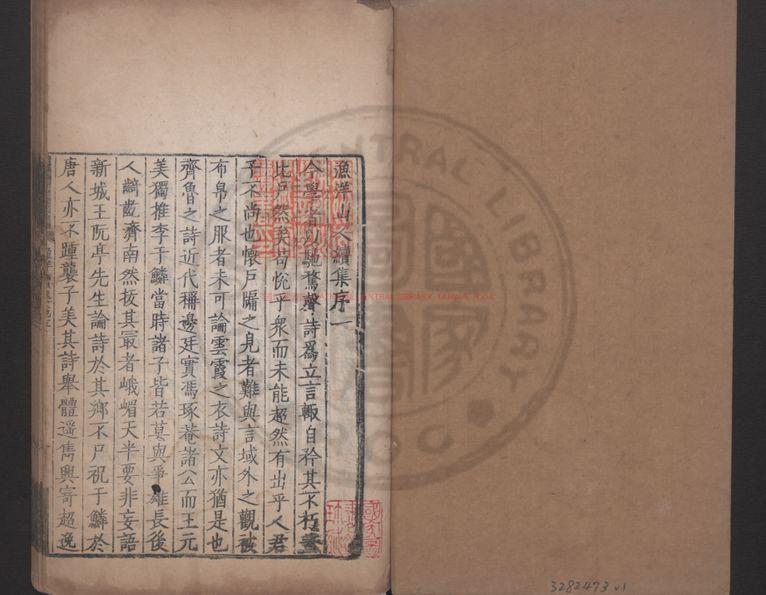 漁洋山人續集序一
今學者以馳騖聲詩爲立言輙自矜其不朽
比戶然矣苟悅乎衆而未能超然有出乎人君
子不尚也懷戶牖之見者難與言域外之觀被
布帛之服者未可論雲霞之衣詩文亦猶是也
齊魯之詩近代稱邊廷實馮琢菴諸公而王元
美獨推李于鱗當時諸子皆若莫與爭雄長後
人齮齕濟南然按其最者峨嵋天半要非妄語
新城王阮亭先生論詩於其鄉不戶祝于鱗於
唐人亦不踵襲子美其詩舉體遥雋興寄超逸
CENTRAL LIBRARY
3282473 v1